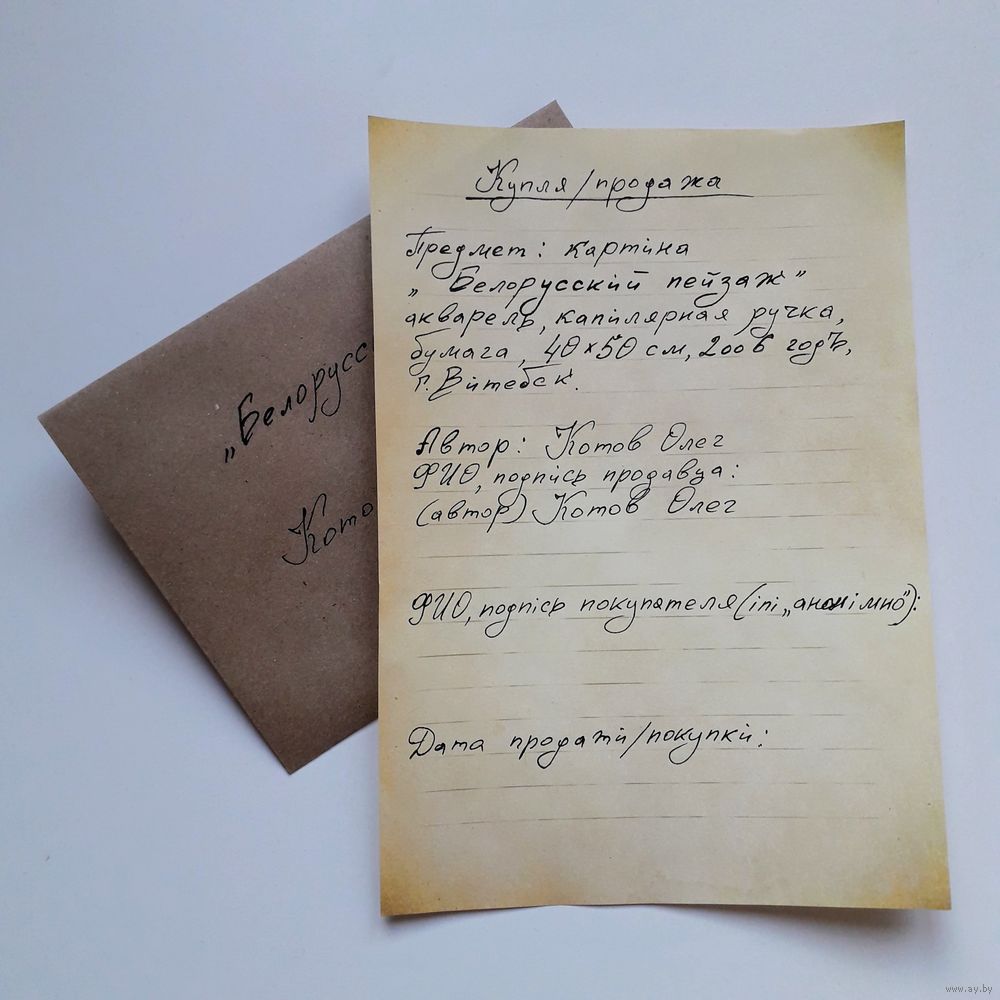 Купля/продажа
Предмет: картіна
„Белорусскій пейзаж"
акварель, капілярная ручка,
бумага, 40×50 см, 2006 годъ,
г. Вітебск.
Автор: Котов Олег
ФИО, подпісь продавца:
(автор) Котов Олег
ФИО, подпісь покупателя (ілі „анонімно"):
Дата продажі/покупкі:
„Белорусс
Кото
www.ay.by